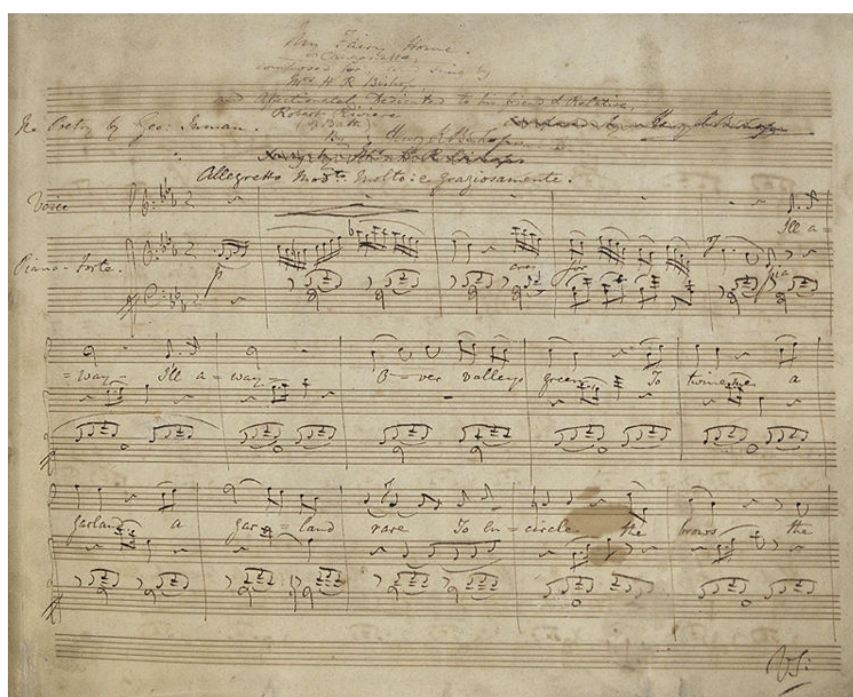 My Fairy Home.
a Canzonetta,
composed for & sung by
Mrs. H R Bishop
and affectionately Dedicated to his friend & Relative,
Robert Riviere
(of Bath)
The Poetry by Geo: Inman.
By Henry R Bishop.
Allegretto modto. molto: e graziosamente.
Voice
I'll a=
Piano-Forte.
cres
for
pia
=way - I'll a=way - O=ver valleys green, To twine me a
garland a gar=land rare To en=circle the brows the
V.S: